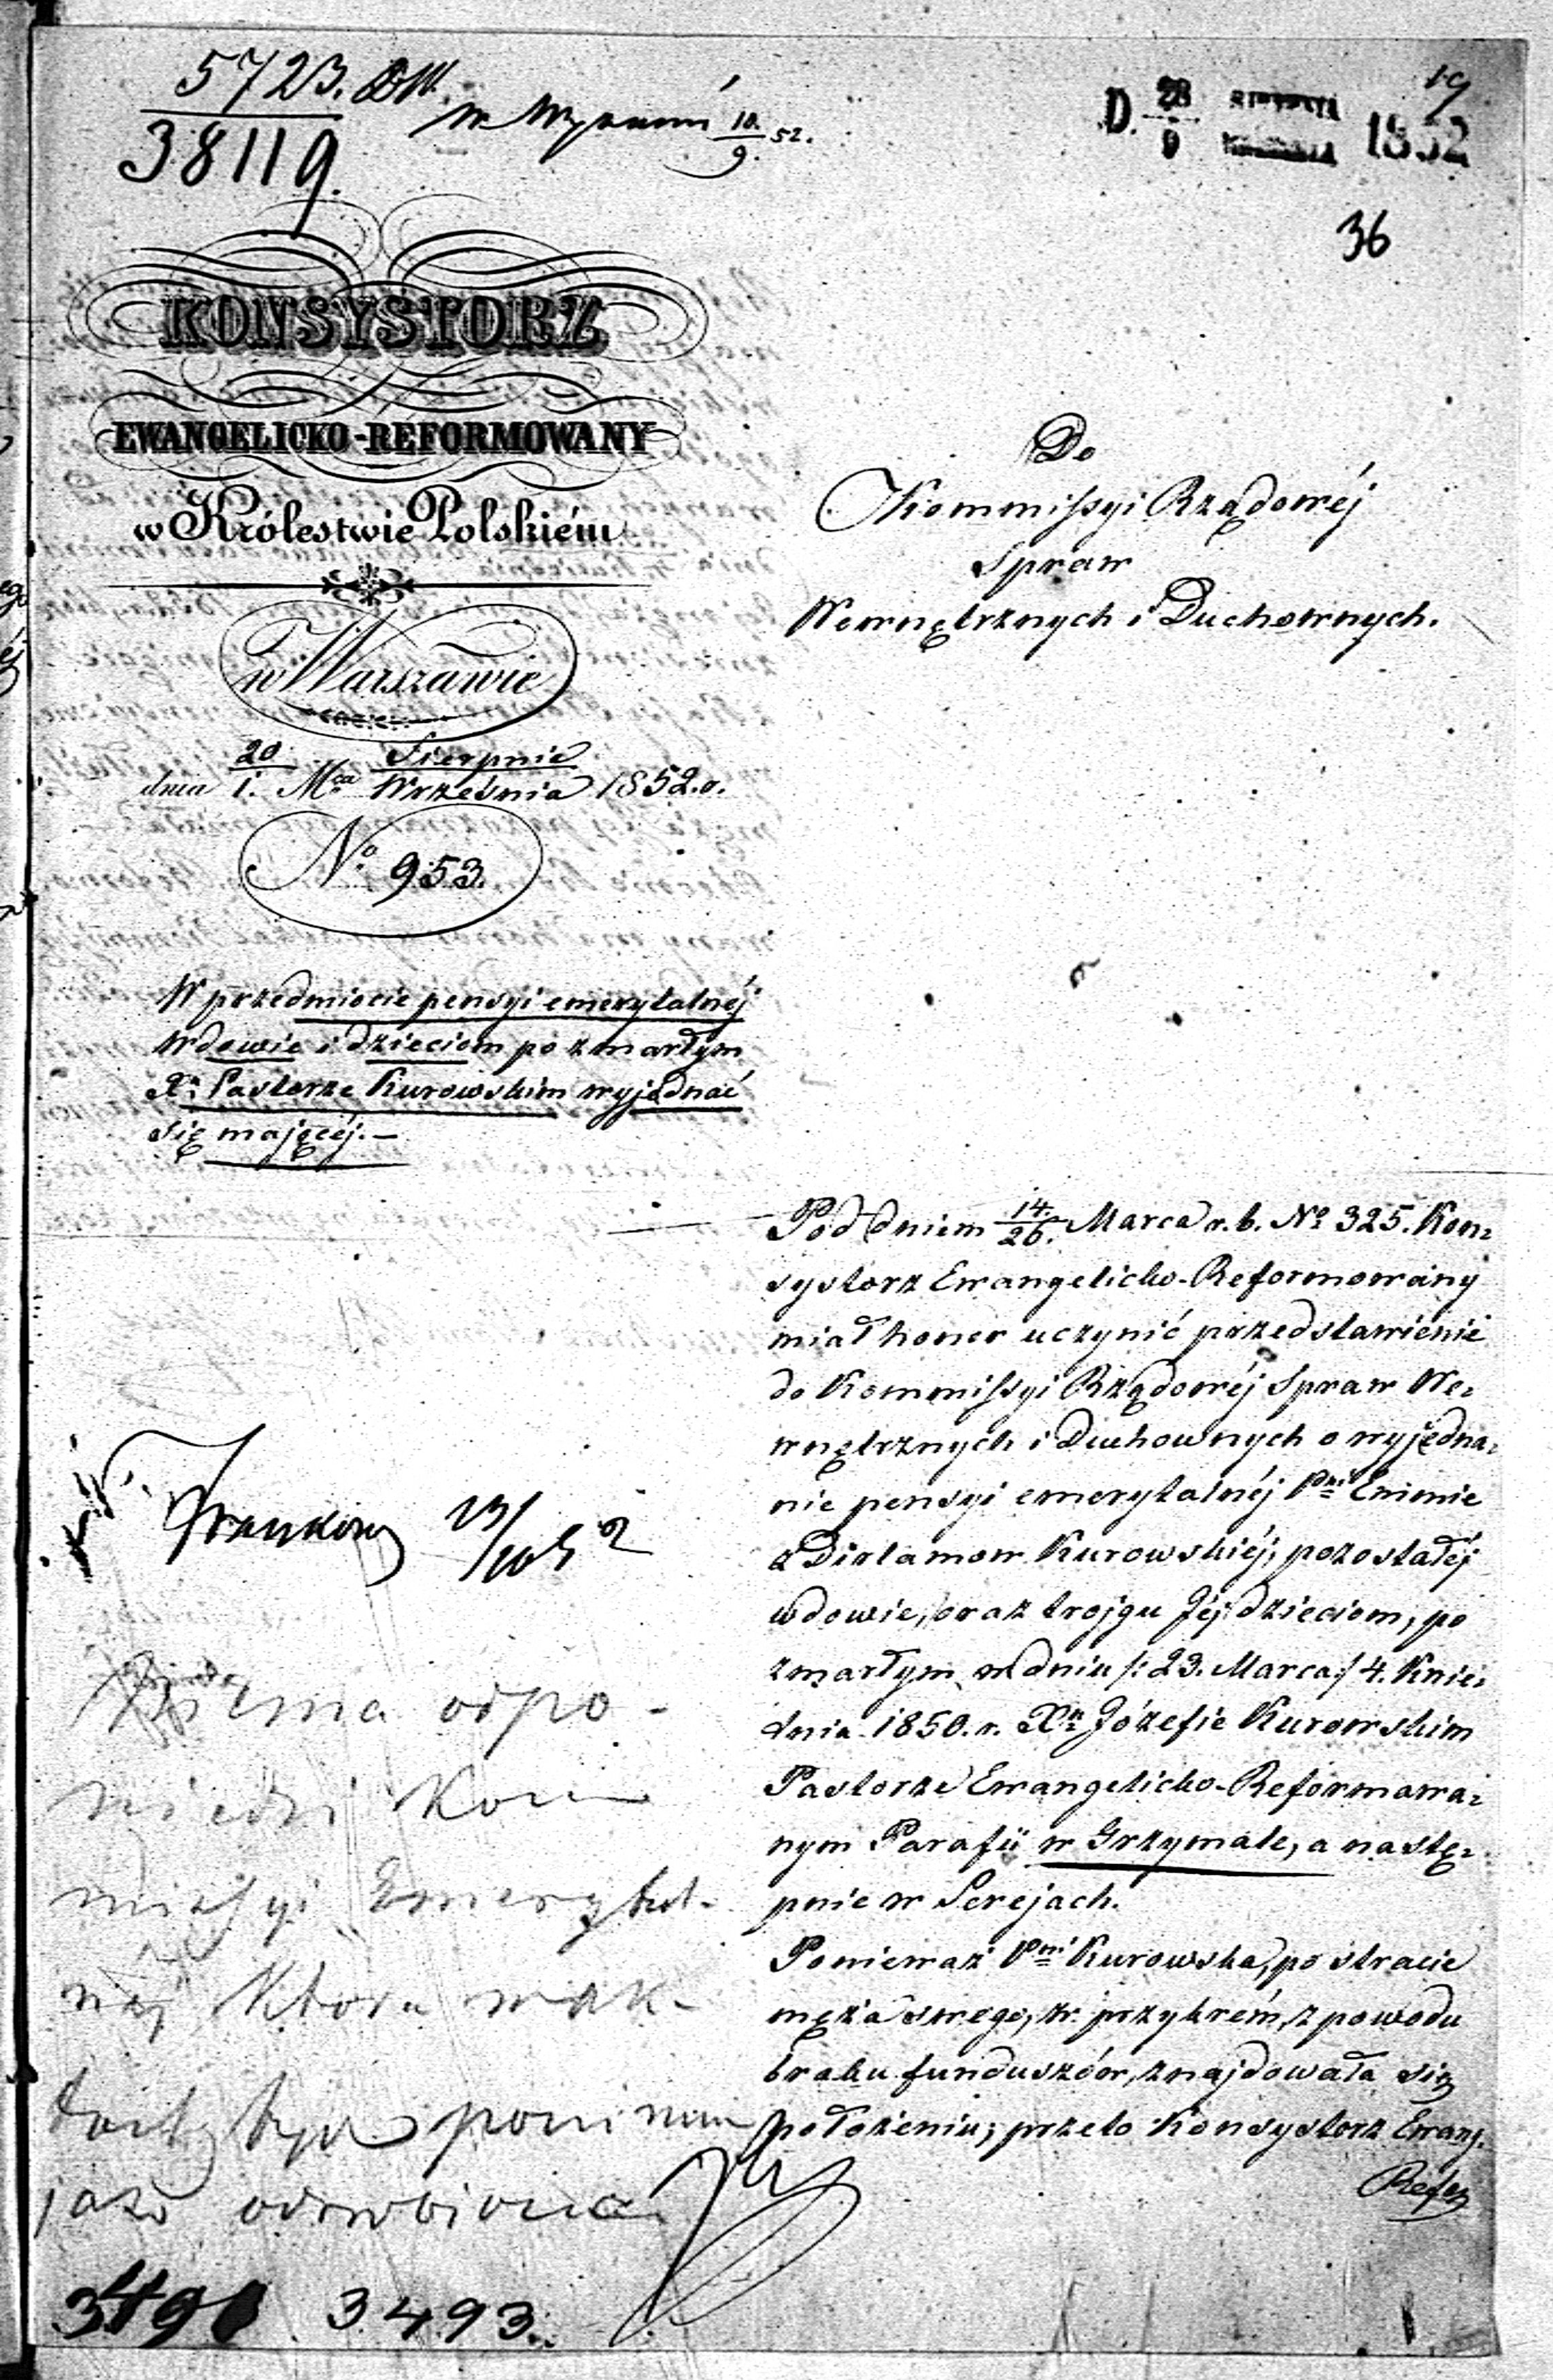 5723.
38119.
w Wyznań 10/9 52.
D. 28/9 SIERPNIA WRZEŚNIA 1852
19
36
KONSYSTORZ
EWANGELICKO-REFORMOWANY
w Królestwie Polskiém
w Warszawie
dnia 20/1. Mca Sierpnia/Września 1852.r.
No 953.
W przedmiocie pensyi emerytalnéj
wdowie i dzieciom po zmarłym
Xu Pastorze Kurowskim wyjednać
się mającéj.—
Do
Kommissyi Rządowéj
Spraw
Wewnętrznych i Duchownych.
Pod dniem 14./26. Marca r. b. No 325. Kon-
systorz Ewangelicko-Reformowany
miał honor uczynić przedstawienie
do Kommissyi Rządowéj Spraw We-
wnętrznych i Duchownych o wyjedna-
nie pensyi emerytalnéj Pni Emmie
z Dirlamow Kurowskiéj, pozostałéj
wdowie, oraz trojgu Jéj dzieciom, po
zmarłym w dniu /:23. Marca:/ 4. Kwie-
tnia 1850. r. Xu Józefie Kurowskim
Pastorze Ewangelicko-Reformowa-
nym Parafii w Grzymale, a nastę-
pnie w Serejach.
Ponieważ Pni Kurowska, po stracie
męża swego, w przykrém, z powodu
braku funduszów, znajdowała się
położeniu; przeto Konsystorz Ewang.
Refor
23/10 52
niema odpo-
wiedzi Kom
missyi Emerytal-
nej która
być powinna
jako odrobiona
3491 3493.